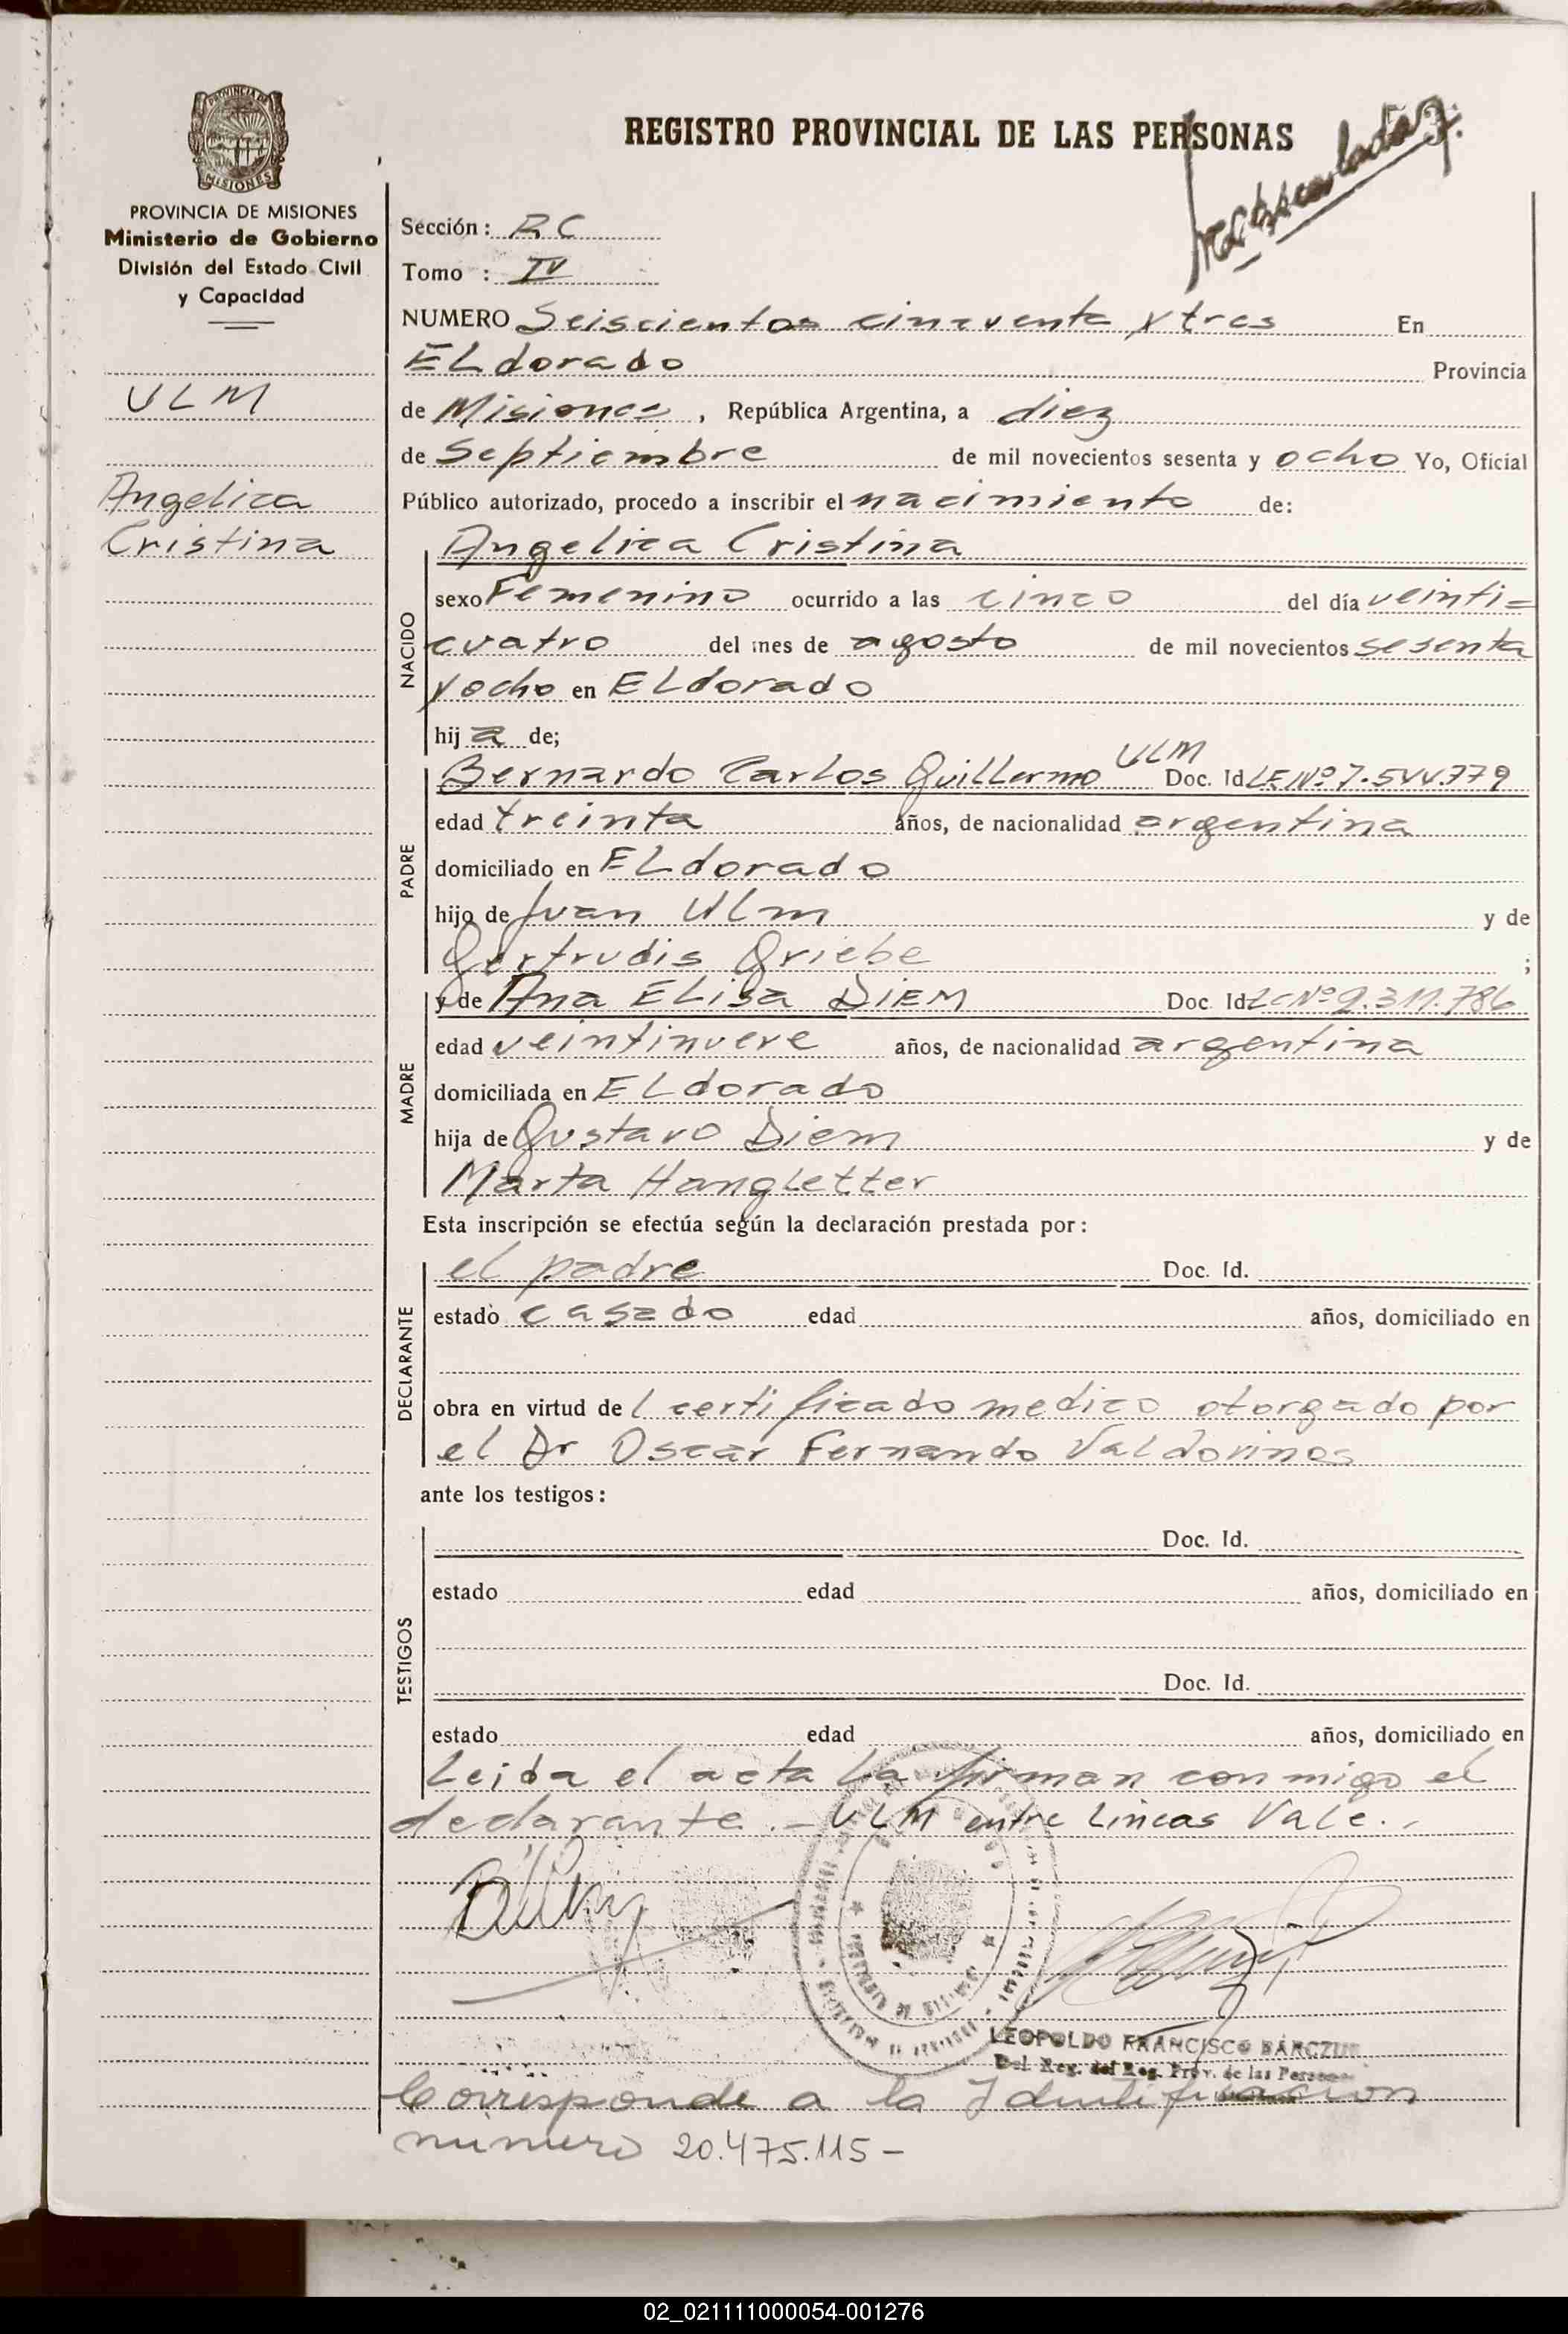 REGISTRO PROVINCIAL DE LAS PERSONAS
PROVINCIA DE MISIONES
Ministerio de Gobierno
División del Estado Civil
y Capacidad
ULM
Angelica
Cristina
Sección: RC
Tomo : IV
NUMERO Seiscientos cincuenta y tres En
ELdorado Provincia
de Misiones, República Argentina, a diez
de Septiembre de mil novecientos sesenta y ocho Yo, Oficial
Público autorizado, procedo a inscribir el nacimiento de:
NACIDO
Angelica Cristina
sexo Femenino ocurrido a las cinco del día veinti=
cuatro del mes de agosto de mil novecientos sesenta
y ocho en ELdorado
hija de;
PADRE
ULM
Bernardo Carlos Guillermo Doc. Id LE Nº 7.544.779
edad treinta años, de nacionalidad argentina
domiciliado en ELdorado
hijo de Juan Ulm y de
Gertrudis Griebe ;
MADRE
y de Ana Elisa DIEM Doc. Id LC Nº 9.311.786
edad veintinueve años, de nacionalidad argentina
domiciliada en ELdorado
hija de Gustavo Diem y de
Marta Hangletter
Esta inscripción se efectúa según la declaración prestada por:
DECLARANTE
el padre Doc. Id.
estado casado edad años, domiciliado en
obra en virtud del certificado medico otorgado por
el Dr Oscar Fernando Valdovinos
ante los testigos:
TESTIGOS
Doc. Id.
estado edad años, domiciliado en
Doc. Id.
estado edad años, domiciliado en
Leida el acta la firman conmigo el
declarante.- ULM entre Lineas Vale.
LEOPOLDO FRANCISCO
Del Reg. del Reg. Prov. de las Personas
Corresponde a la Identificacion
numero 20.475.115-
02_021111000054-001276